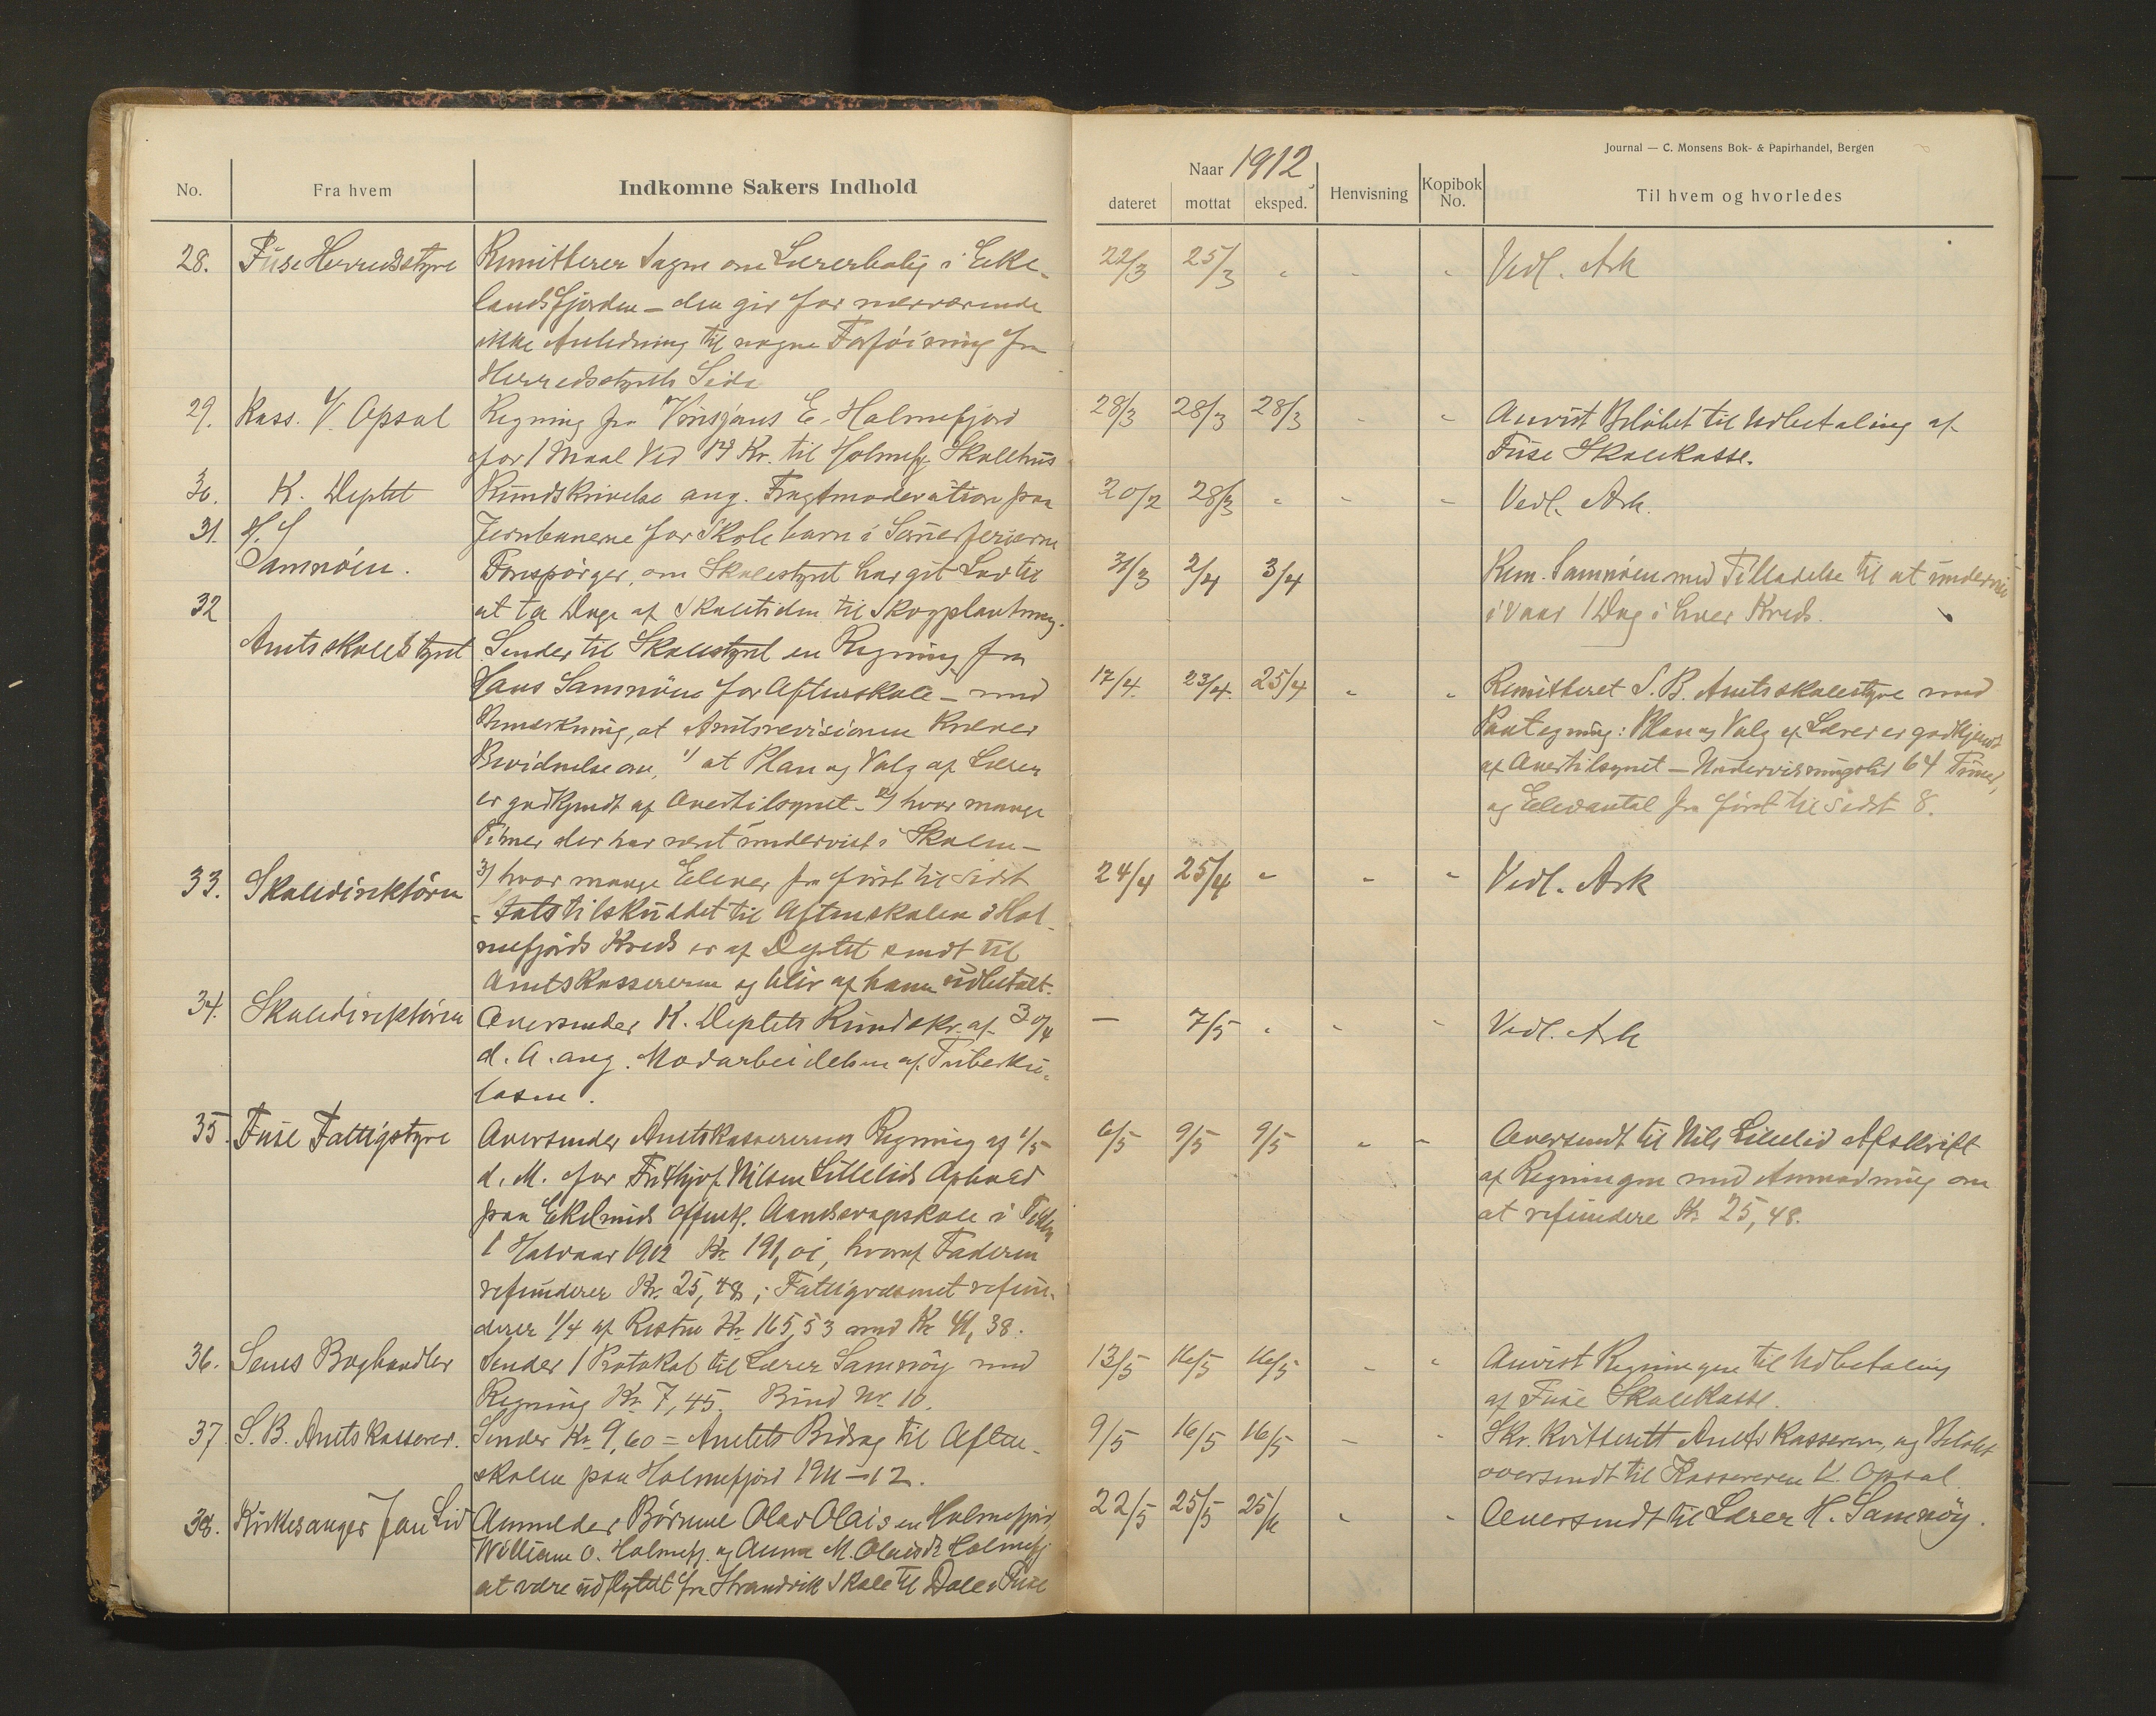 No.
Fra hvem
Indkomne Sakers Indhold
28. Fuse Herredsstyre Remitterer Sagen om Lærerbolig i Eke-
landsfjorden - den gir for nærværende
ikke Anledning til nogen Forføining fra
Herredsstyrets Side
29. Kass. K. Opsal Regning fra E. Holmefjord
for 1 Maal Ved Kr. til Holmefj. Skolehus
30. K. Deptet Rundskrivelse ang. Fragtmoderation paa
31. H. J. Jernbanerne for Skolebarn i Sommerferierne
Samnøien. Forespørger, om Skolestyret har git Lov til
32 at ta Dage af Skoletiden til Skogplantning.
Amtsskolestyret Sender til Skolestyret en Regning fra
Hans Samnøien for Aftenskole - med
Bemerkning, at Amtsrevisionen kræver
Bevidnelse om, 1/ at Plan og Valg af Lærer
er godkjendt af Overtilsynet - 2/ hvor mange
Timer der har været undervist i Skolen -
33. Skoledirektøren 3/ hvor mange Elever fra først til sidst
Statstilskuddet til Aftenskolen i Hol-
mefjords Kreds er af Deptet sendt til
Amtskassereren og blir af ham udbetalt.
34. Skoledirektøren Oversender K. Deptets Rundskr. af 30/4
d. A. ang. Modarbeidelsen af Tuberku-
losen.
35. Fuse Fattigstyre Oversender Amtskassererens Regning af 1/5
d. M. for Frithjof Nilsen Lillelids Ophold
paa Ekelunds offentl. Aandsvageskole i
1 Halvaar 1912 Kr. 191,01, hvoraf Faderen
refunderer Kr. 25,48; Fattigvæsenet refun-
derer 1/4 af Resten Kr. 165,53 med Kr. 41,38.
36. Sems Boghandler Sender 1 Protokol til Lærer Samnøy med
Regning Kr. 7,45. Bind Nr. 10.
37. S. B. Amtskasserer. Sender Kr. 9,60 = Amtets Bidrag til Aften-
skolen paa Holmefjord 1911-12.
38. Kirkesanger Jan Lid Anmelder Børnene Olav Olaisen Holmefjord
William O. Holmefj. og Anna M. Olaisdt. Holmefj.
at være udflyttet fra Strandvik Skole til Dale i Fuse
Journal — C. Monsens Bok- & Papirhandel, Bergen
Naar 1912
dateret
mottat
eksped.
Henvisning
Kopibok
No.
Til hvem og hvorledes
22/3 25/3 - - - Vedl. Ark
28/3 28/3 28/3 - - Anvist Beløbet til Udbetaling af
Fuse Skolekasse.
20/2 28/3 - - - Vedl. Ark.
31/3 2/4 3/4 Rem. Samnøien med Tilladelse til at undervise
i Vaar 1 Dag i hver Kreds.
17/4. 23/4. 25/4 - - Remitteret S. B. Amtsskolestyre med
Paategning: Plan og Valg af Lærer er godkjendt
af Overtilsynet - Undervisningstid 64 Timer,
og Elevantal fra først til sidst 8.
24/4 25/4 - - - Vedl. Ark
— 7/5 - - - Vedl. Ark
6/5 9/5 9/5 - - Oversendt til Nils Lillelid Afskrift
af Regningen med Anmodning om
at refundere Kr. 25,48.
13/5 16/5 16/5 - - Anvist Regningen til Udbetaling
af Fuse Skolekasse.
9/5 16/5 16/5 - - Skr. kvitterett Amtskassereren, og Beløbet
oversendt til Kassereren K. Opsal
22/5 25/5 25/6 - - Oversendt til Lærer H. Samnøy.